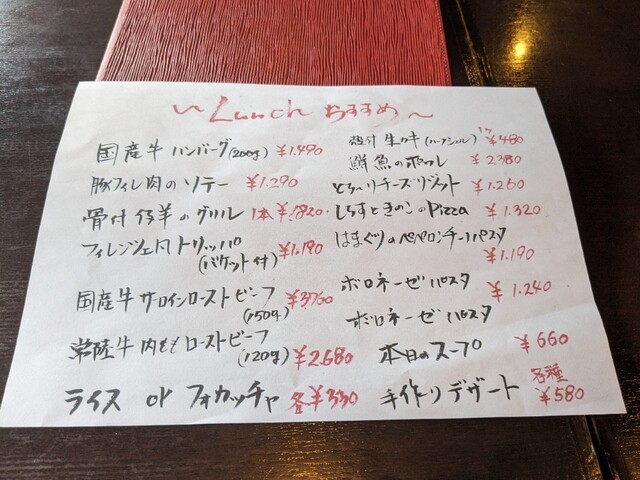 〜Lunch おすすめ〜
国産牛 ハンバーグ(200g) ¥1.490
豚フィレ肉のソテー ¥1.290
骨付仔羊のグリル 1本 ¥1.820
フィレンツェ風トリッパ
(バケット付) ¥1.190
国産牛サロインローストビーフ
(150g) ¥3760
常陸牛内ももローストビーフ
(120g) ¥2.680
ライス or フォカッチャ 各¥330
殻付 生カキ(ハーフシェル) 1ケ ¥480
鮮魚のポワレ ¥2380
とろ〜りチーズリゾット ¥1.260
しらすときのこのPizza ¥1.320
はまぐりのペペロンチーノパスタ
¥1.190
ボロネーゼパスタ ¥1.240
ボロネーゼパスタ
本日のスープ ¥660
手作りデザート 各種
¥580